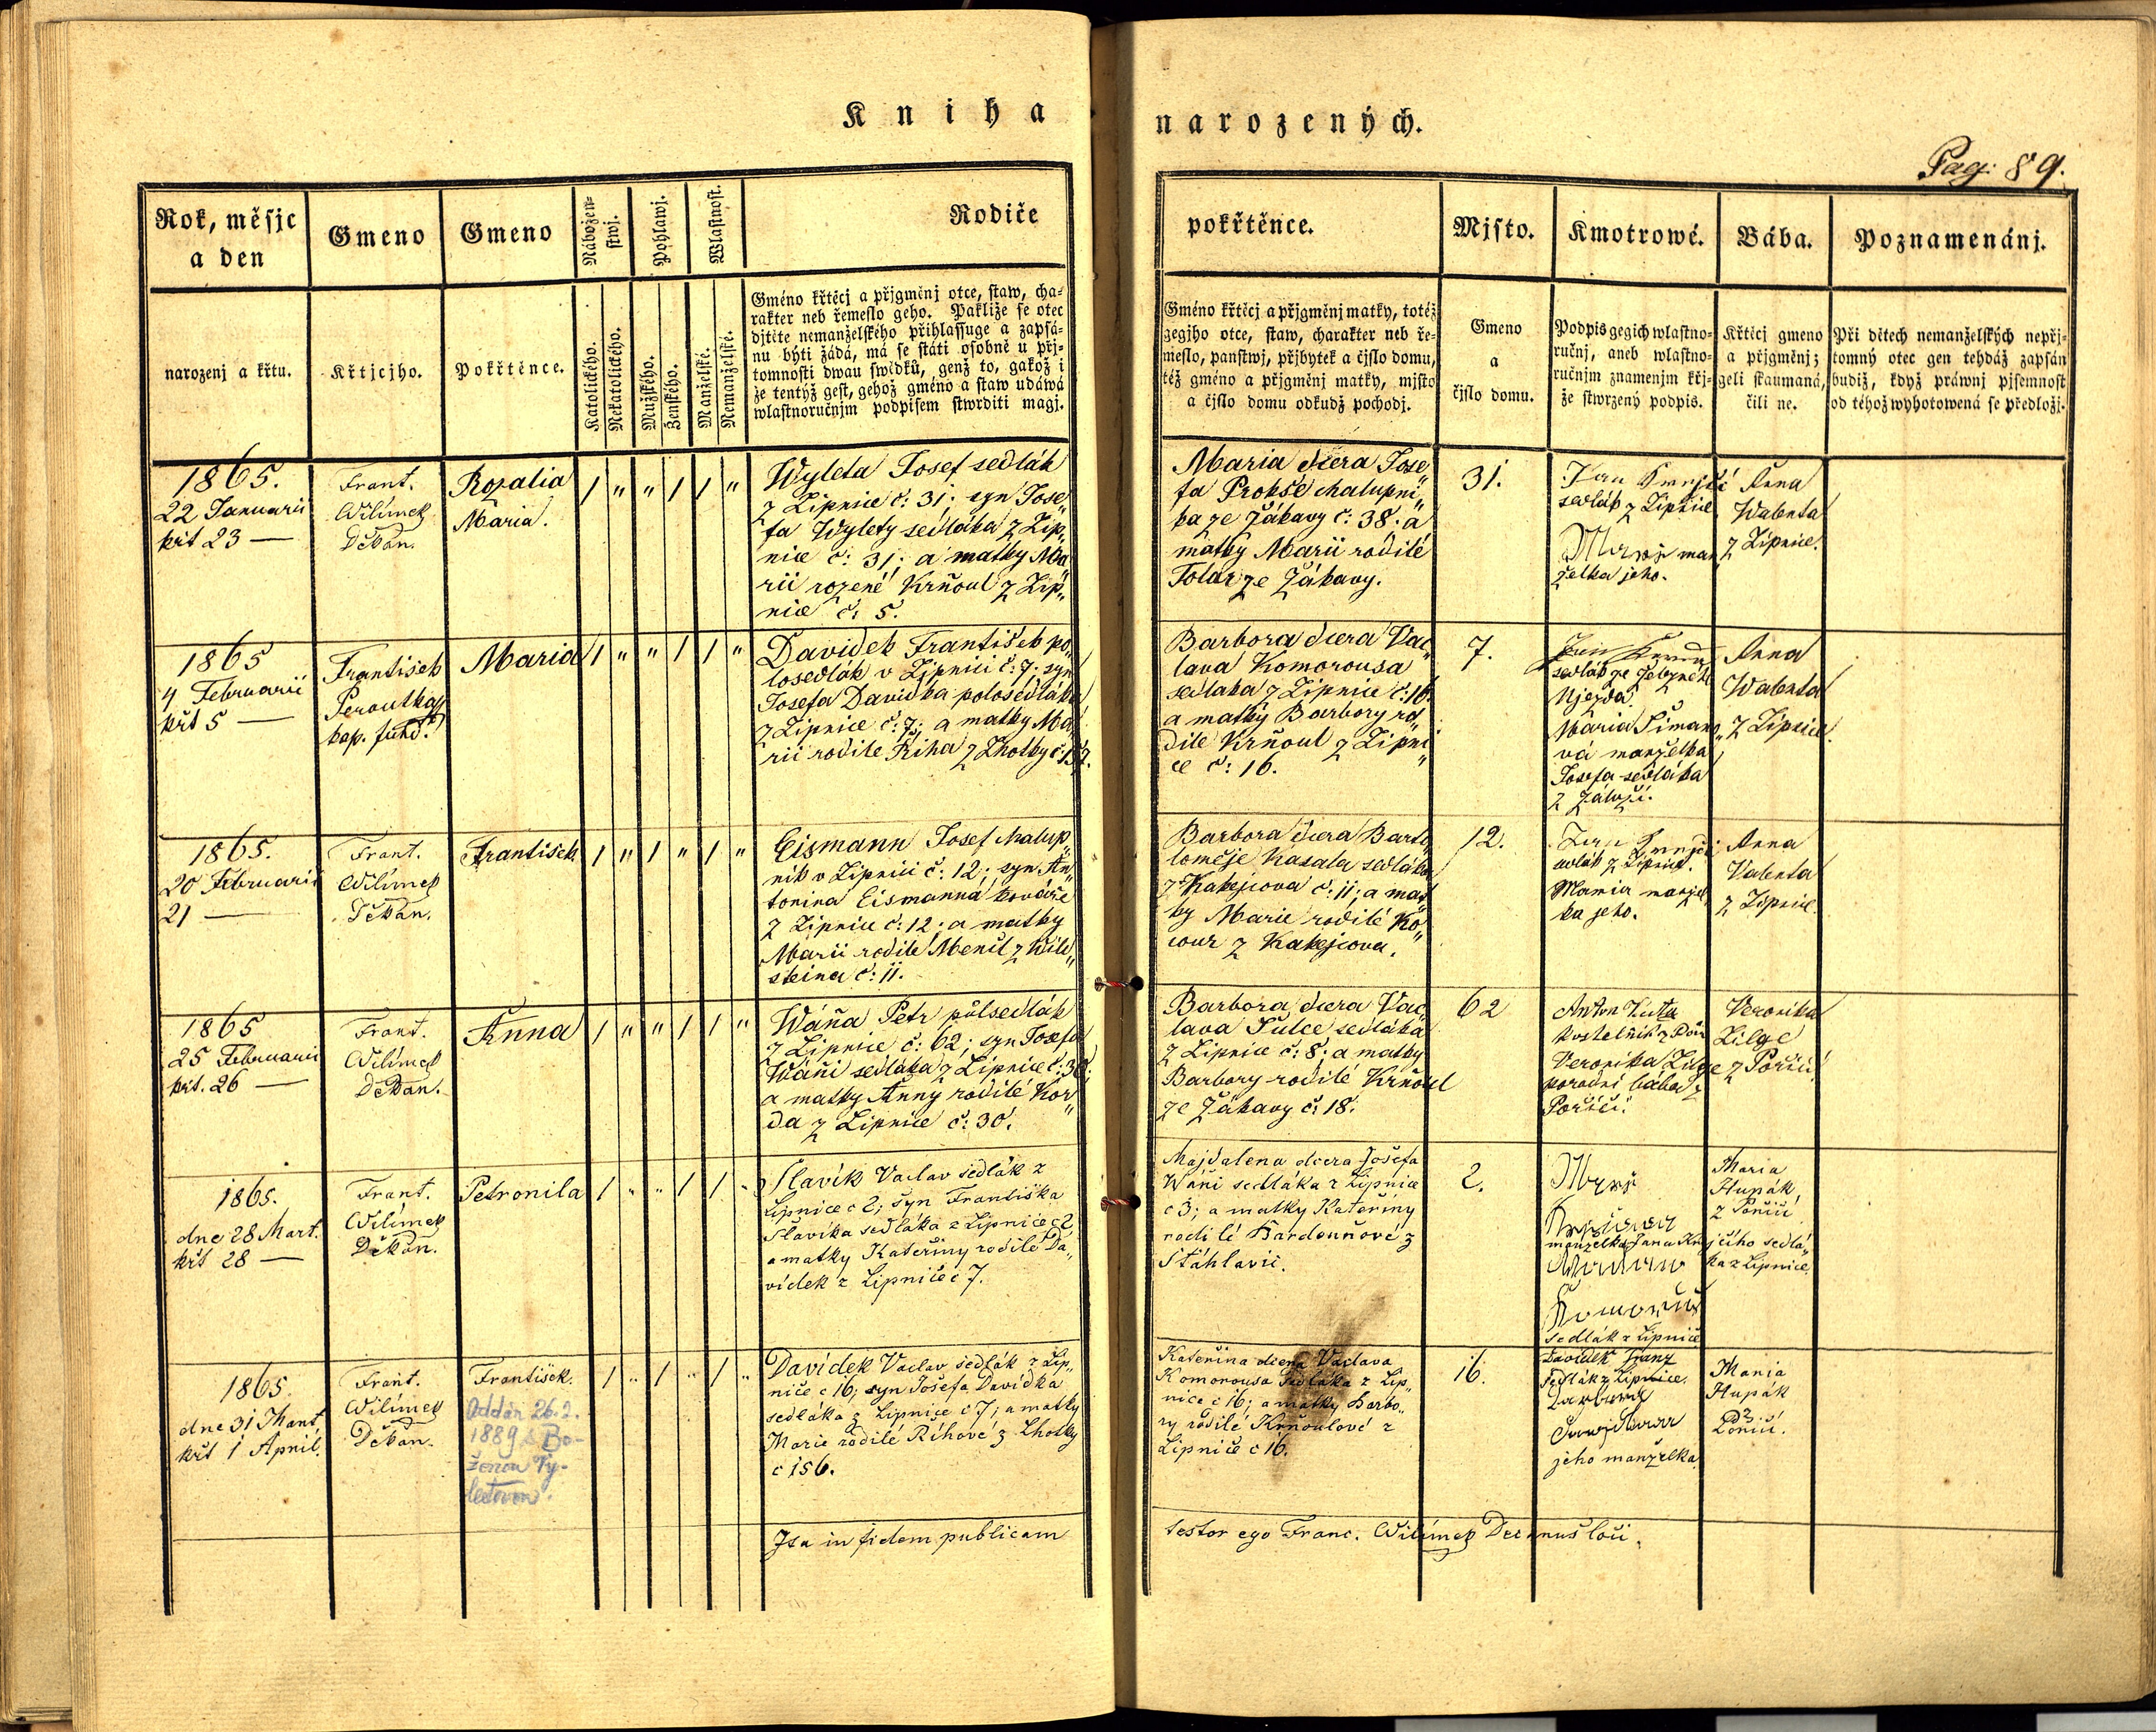 Kniha narozených.
Pag: 89.
Rok, měsjc
a den
narozenj a křtu.
Gmeno
Křtjcjho.
Gmeno
Pokřtěnce.
Nábožen-
stwj.
Katolického.
Nekatolického.
Pohlawj.
Mužského.
Ženského.
Wlastnost.
Manželské.
Nemanželské.
Rodiče
Gméno křtěcj a přjgměnj otce, staw, cha-
rakter neb řemeslo geho. Pakliže se otec
djtěte nemanželského přihlassuge a zapsá-
nu býti žádá, má se státi osobně u přj-
tomnosti dwau swědků, genž to, gakož i
že tentýž gest, gehož gméno a staw udáwá
wlastnoručnjm podpisem stwrditi magj.
pokřtěnce.
Gméno křtěcj a přjgměnj matky, totéž
gegjho otce, staw, charakter neb ře-
meslo, panstwj, přjbytek a čjslo domu,
též gméno a přjgměnj matky, mjsto
a čjslo domu odkudž pochodj.
Mjsto.
Gmeno
a
čjslo domu.
Kmotrowé.
Podpis gegich wlastno-
ručnj, aneb wlastno-
ručnjm znamenjm křj-
že stwrzený podpis.
Bába.
Křtěcj gmeno
a přjgměnj;
geli skaumaná,
čili ne.
Poznamenánj.
Při dětech nemanželských nepřj-
tomný otec gen tehdáž zapsán
budiž, když práwnj pjsemnost
od téhož wyhotowená se předložj.
1865.
22 Januarii
křt 23 —
Frant.
Wilímek
Děkan.
Rozalia
Maria.
1 " " 1 1 "
Wyleta Josef sedlák
z Lipnice č: 31; syn Jose„
fa Wylety sedláka z Lip„
nice č: 31; a matky Ma„
rii rozené Krňoul z Lip„
nice č: 5.
Maria dcera Jose„
fa Prokše chalupni„
ka ze Žákavy č: 38. a
matky Marii rodilé
Tolar ze Žákavy.
31.
Jan
sedlák z Lipnice
man
želka jeho.
Anna
Walenta
z Lipnice.
1865
4 Februarii
křt 5 —
František
Peroutka
kap. fund.
Maria
1 " " 1 1 "
Davidek František po„
losedlák v Lipnici č: 7. syn
Josefa Davidka polosedláka
z Lipnice č: 7; a matky Ma„
rii rodile Řiha z Lhotky č:
Barbora dcera Vac„
lava Komorousa
sedlaka z Lipnice č: 16.
a matky Barbory ro„
dile Krňoul z Lipni„
ce č: 16.
7.
sedlák ze Železného
Ujezda.
Maria Šimano„
vá manželka
Josefa sedláka
z Záluží.
Anna
Walenta
z Lipnice.
1865.
20 Februarii
21 —
Frant.
Wilímek
Děkan.
František
1 " 1 " 1 "
Eismann Josef chalup„
nik v Lipnici č: 12; syn An„
tonina Eismanna kováře
z Lipnice č: 12; a matky
Marii rodile Menčl z Wild„
steina č: 11.
Barbora dcera Barto„
loměje Kasala sedláka
z Kakejcova č: 11; a mat„
ky Marie rodilé Ko„
cour z Kakejcova.
12.
Jan
sedlák z Lipnice.
Maria manžel„
ka jeho.
Anna
Valenta
z Lipnice.
1865
25 Februarii
křt. 26 —
Frant.
Wilímek
Děkan.
Anna
1 " " 1 1 "
Wáňa Petr půlsedlák
z Lipnice č: 62; syn Josefa
Wáňi sedláka z Lipnice č: 30;
a matky Anny rodilé Kor„
da z Lipnice č: 30.
Barbora dcera Vac„
lava Šulce sedláka
z Lipnice č: 8; a matky
Barbory rodilé Krňoul
ze Žákavy č: 18.
62
Anton
kostelnik z Poř.
Veronika Lilge
porodní bába z
Poříčí.
Veronika
Lilge
z Poříčí.
1865.
dne 28 Mart.
křt 28 —
Frant.
Wilímek
Děkan.
Petronila
1 " " 1 1 "
Slavík Vaclav sedlák z
Lipnice č 2; syn Františka
Slavíka sedláka z Lipnice č 2
a matky Kateřiny rodilé Da„
videk z Lipnice č 7.
Majdalena dcera Josefa
Wáni sedláka z Lipnice
č 3; a matky Kateřiny
rodilé Bardounňové z
Šťáhlavic.
2.
manželka Jana Krejčího sedlá„
ka z Lipnice.
Komorous
sedlák z Lipnice
Maria
Hupák
z Poříčí
1865.
dne 31 Mart.
křt 1 April.
Frant.
Wilímek
Děkan.
František.
Oddán 26.2.
1889 s Bo-
ženou Vy-
letovou.
1 " 1 " 1 "
Davídek Vaclav sedlák z Lip„
nice č 16; syn Josefa Davídka
sedláka z Lipnice č 7; a matky
Marie rodilé Říhové z Lhotky
č 156.
Kateřina dcera Václava
Komorousa sedláka z Lip„
nice č 16; a matky Barbo„
ry rodilé Krňoulové z
Lipnice č 16.
16.
Davidek Franz
sedlák z Lipnice.
Barbora
jeho manželka.
Maria
Hupák
z
Poříčí.
Ita in fidem publicam testor ego Franc. Wilímek Decanus loci.